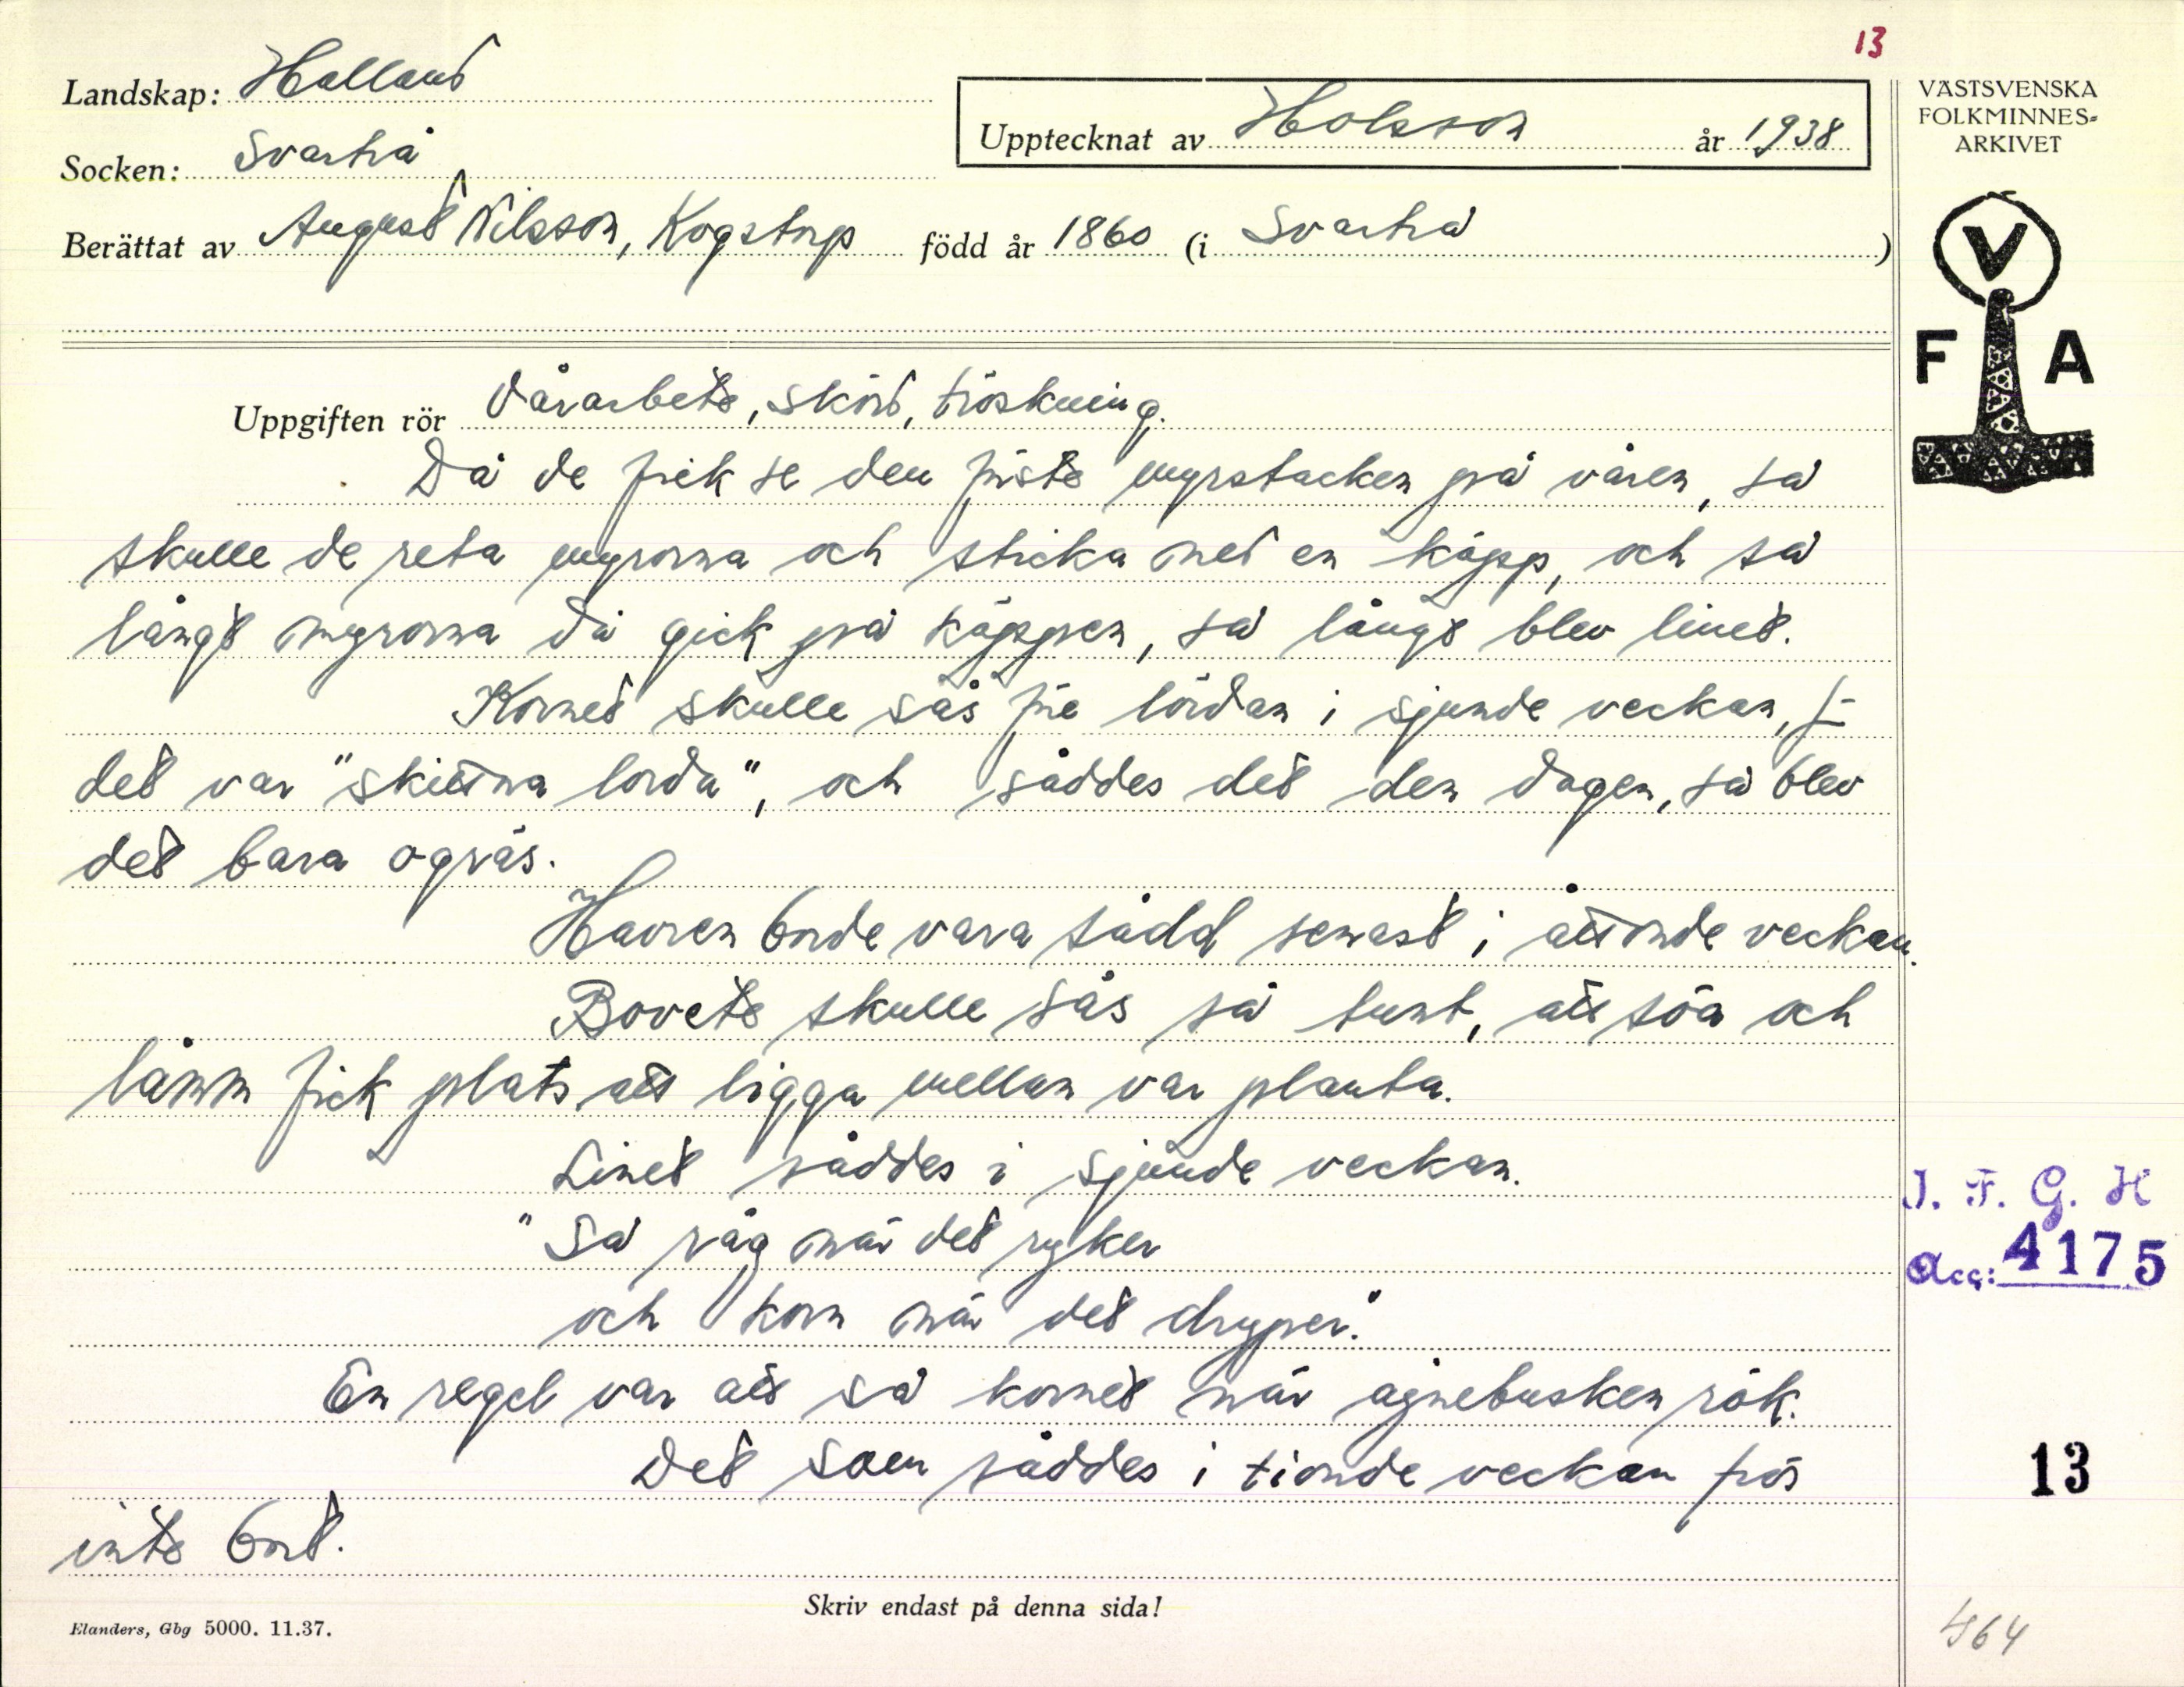 13
Landskap: Halland
Socken: Svartrå
Upptecknat av Holsson år 1938
VÄSTSVENSKA
FOLKMINNES-
ARKIVET
Berättat av August Nilsson, Kogstorp född år 1860 (i Svartrå)
V
F A
Uppgiften rör Vårarbete, skörd, tröskning.
Då de fick se den första myrstacken på våren, så
skulle de reta myrorna och sticka ned en käpp, och så
långt myrorna då gick på käppen, så långt blev linet.
Kornet skulle sås före lördan i sjunde veckan, f-
det var "skittna lorda", och såddes det den dagen, så blev
det bara ogräs.
Havren borde vara sådd senast i åttonde veckan.
Bovete skulle sås så tunt, att söa och
lamm fick plats att ligga mellan var planta.
Linet såddes i sjunde veckan.
"Så råg när det ryker
och korn när det dryper."
En regel var att så kornet när agnebusken rök.
Det som såddes i tionde veckan frös
inte bort.
I. F. G. H
Acc: 4175
13
Skriv endast på denna sida!
Elanders, Gbg 5000. 11.37.
464